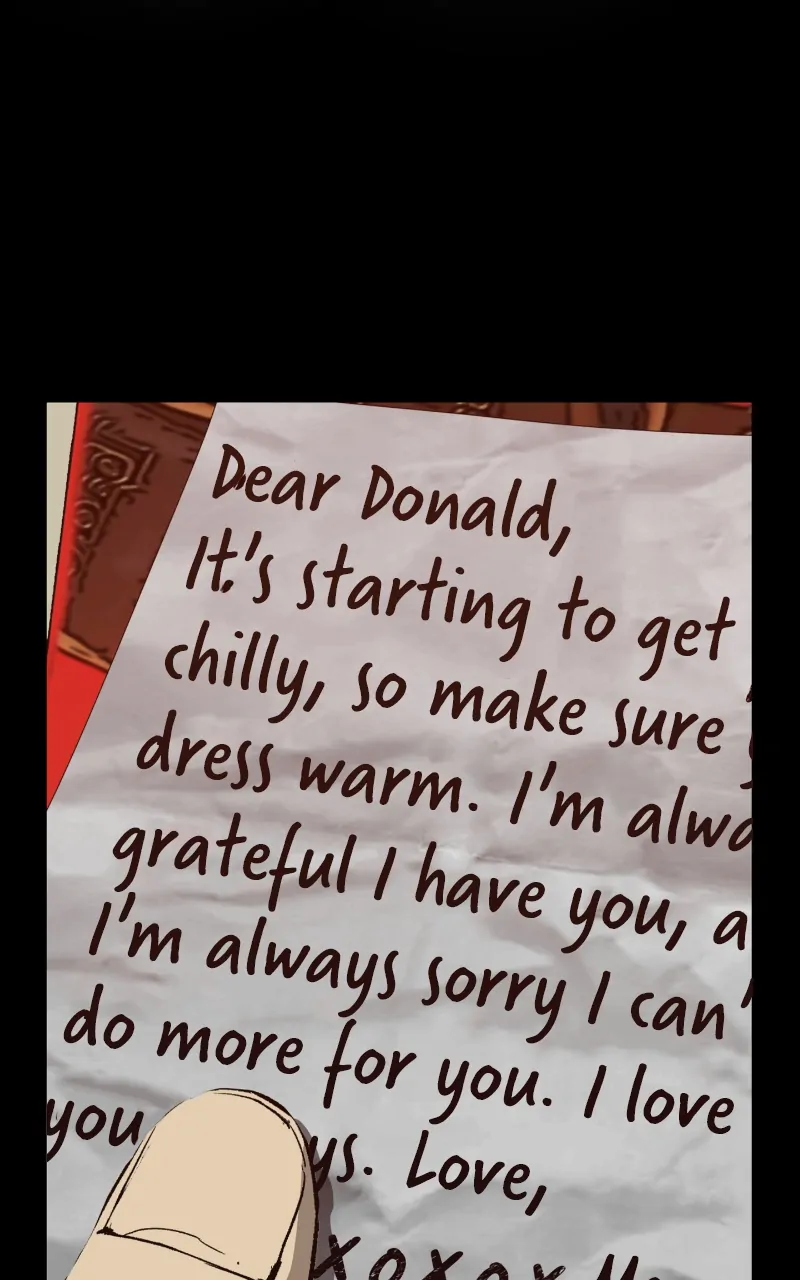 Dear Donald,
It's starting to get
chilly, so make sure
dress warm. I'm alwa
grateful I have you, a
I'm always sorry I can'
do more for you. I love
you ys. Love,
xoxox